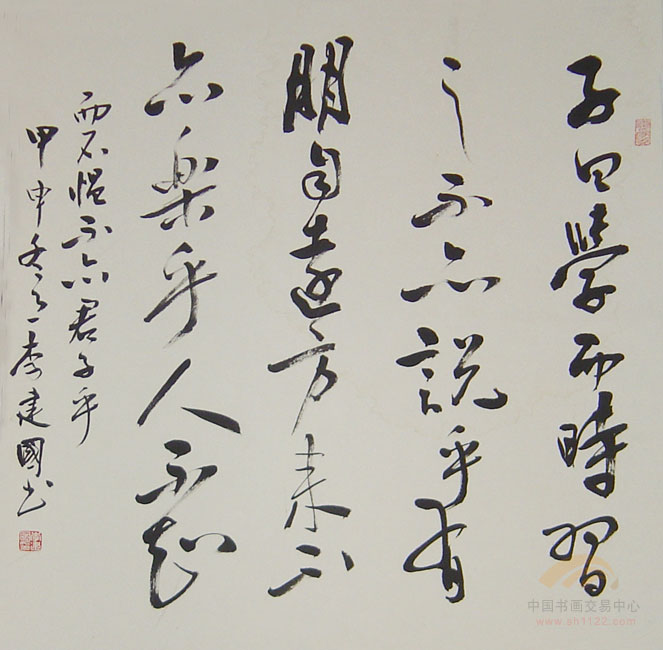 子曰學而時習
之不亦説乎有
朋自遠方來不
亦樂乎人不知
而不愠不亦君子乎
甲申冬月李建國書
中国书画交易中心
www.sh1122.com